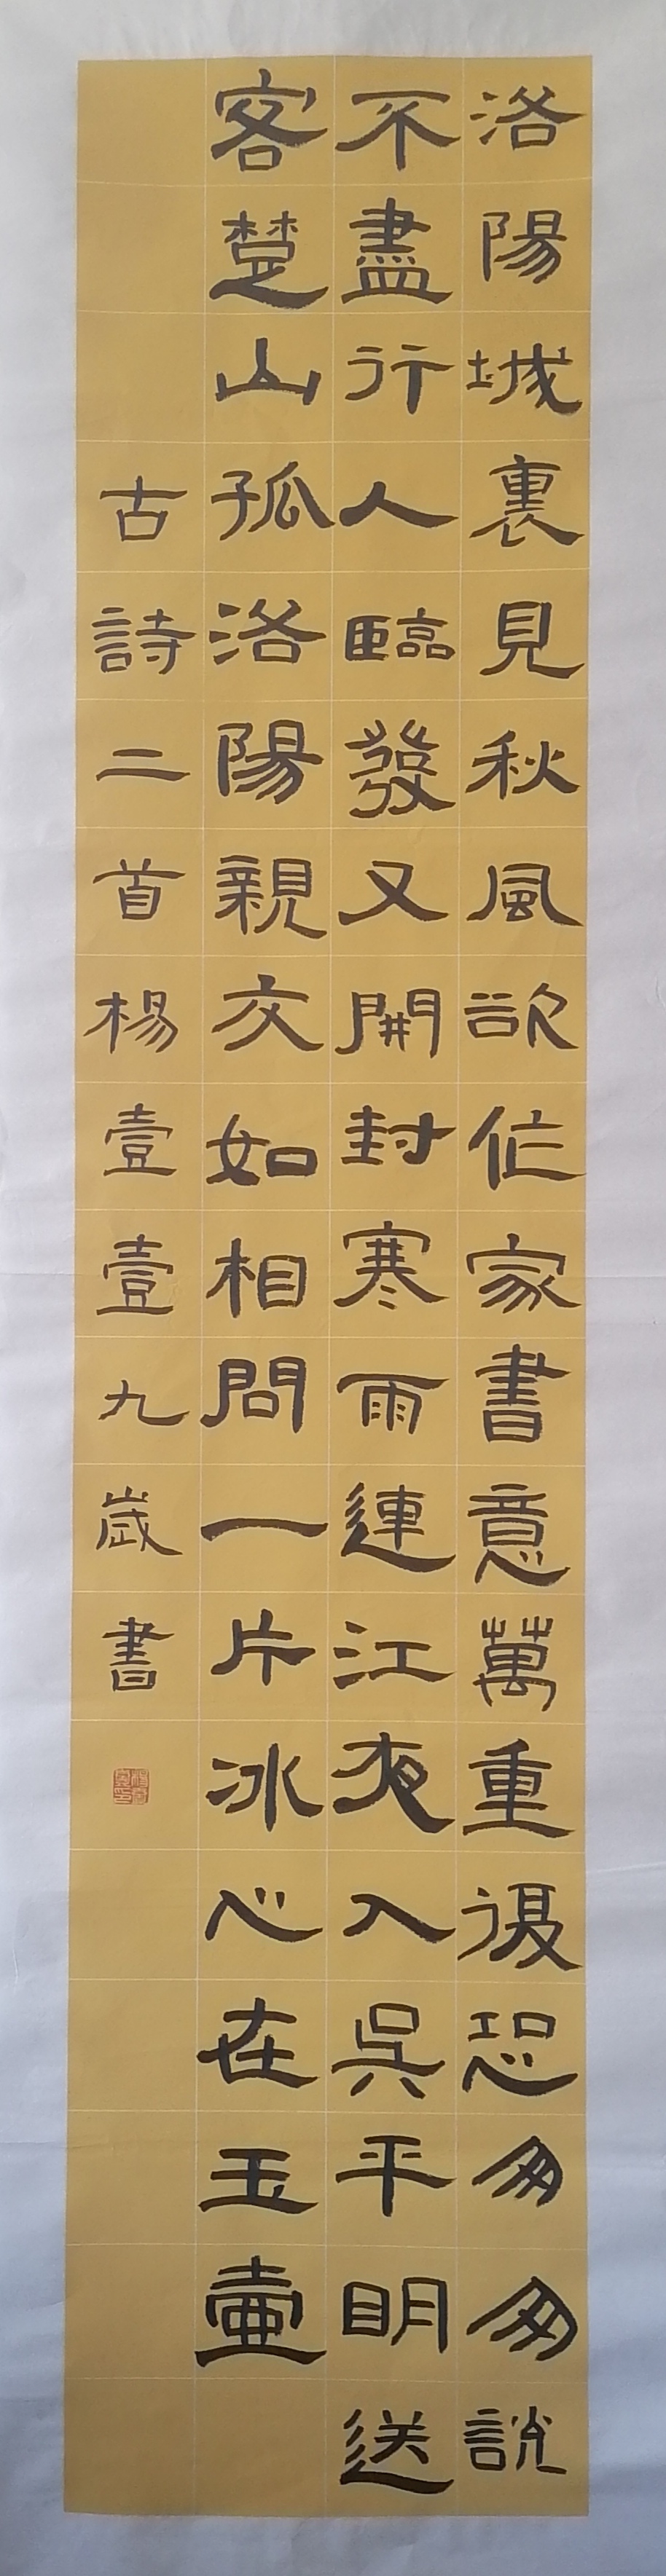 洛陽城裏見秋風欲作家書意萬重復恐匆匆說
不盡行人臨發又開封寒雨連江夜入吳平明送
客楚山孤洛陽親友如相問一片冰心在玉壺
古詩二首楊壹壹九歲書